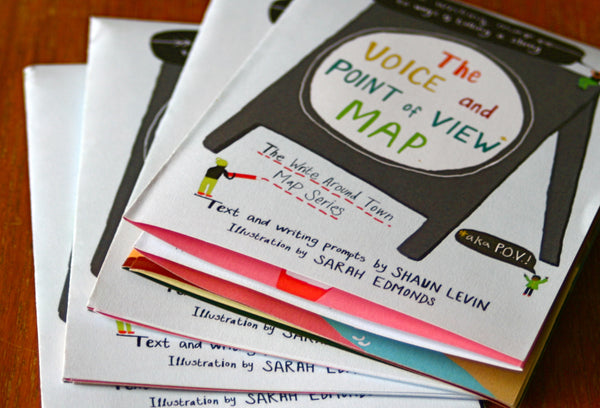 to ways of telling a story
The
VOICE and
POINT of VIEW*
MAP
The Write Around Town
Map Series
Text and writing prompts by SHAUN LEVIN
Illustration by SARAH EDMONDS
*aka P.O.V.!
Illustration by SARAH
Text and writing
Illustration by SARAH EDM
Text and writing
Illustration by SARAH EDMONDS